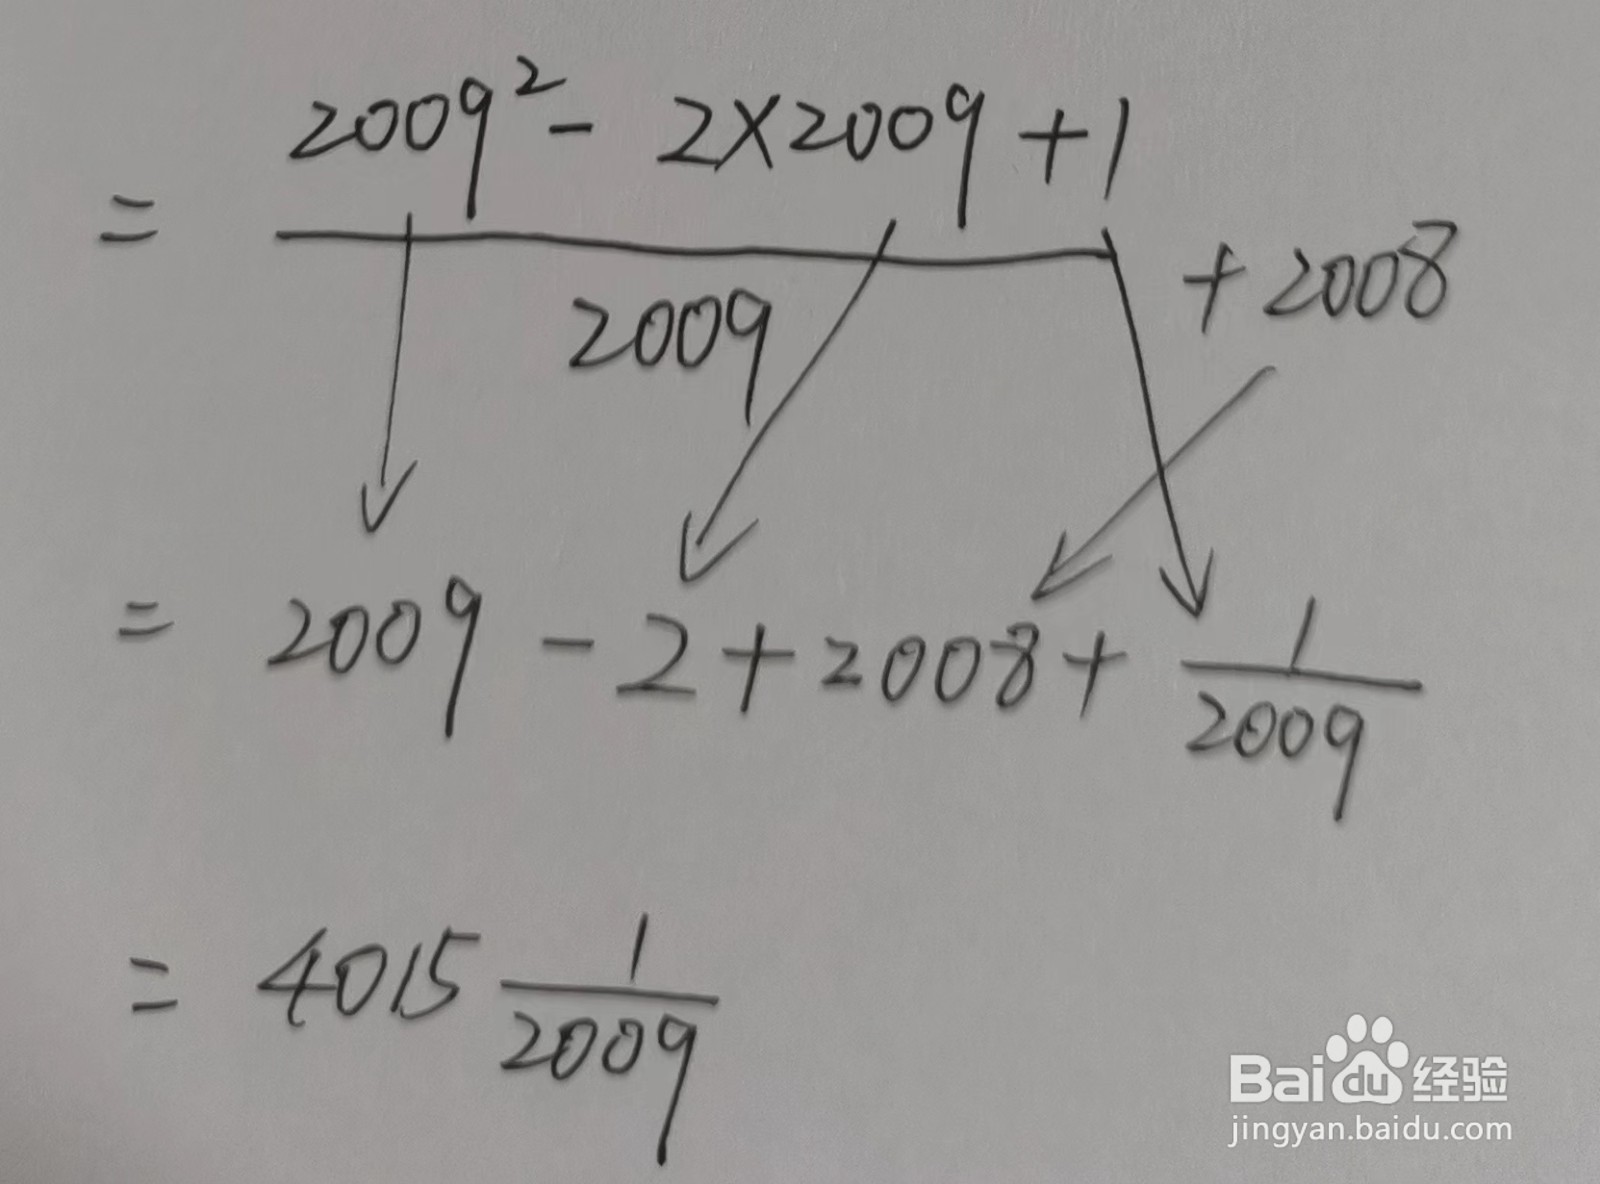 = (2009² - 2×2009 + 1)/2009 + 2008
= 2009 - 2 + 2008 + 1/2009
= 4015 1/2009
Baidu 经验
jingyan.baidu.com